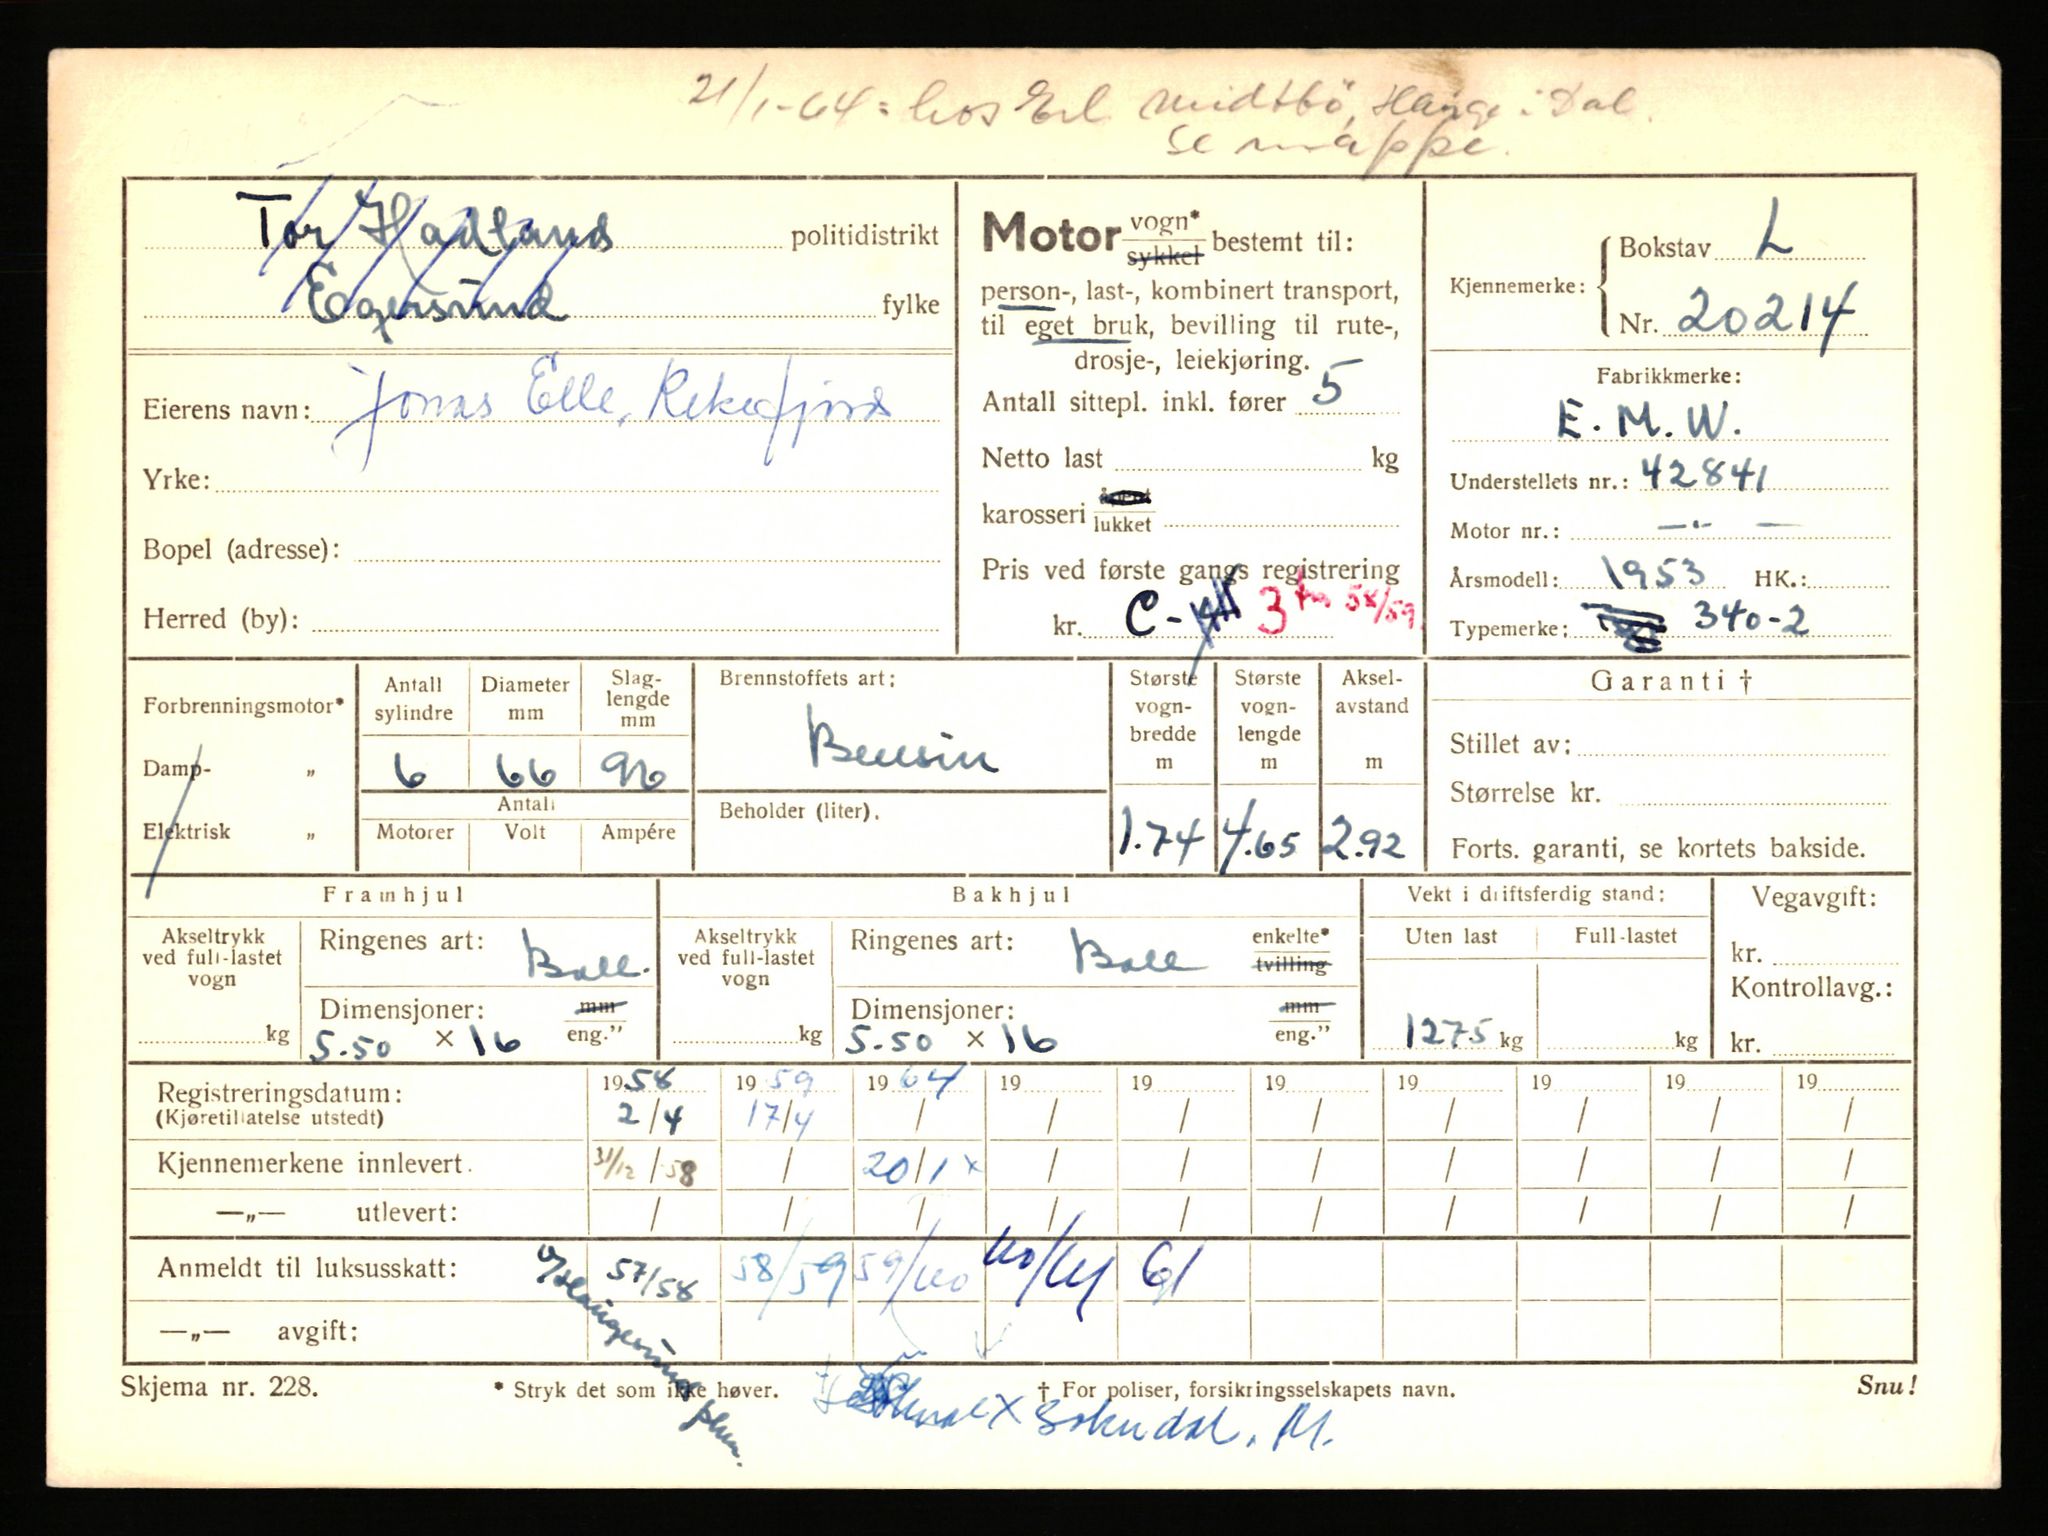 21/1-64 = hos Erl Midtbö, Hauge i Dal.
se mappe.
Tor Hadland politidistrikt
Egersund fylke
Eierens navn: Jonas Elle, Rekefjord
Yrke:
Bopel (adresse):
Herred (by):
Motor vogn* sykkel bestemt til:
person-, last-, kombinert transport,
til eget bruk, bevilling til rute-,
drosje-, leiekjøring.
Antall sittepl. inkl. fører 5
Netto last kg
karosseri åpent lukket
Pris ved første gangs registrering
kr. C- 3 58/59
Kjennemerke: Bokstav L
Nr. 20214
Fabrikkmerke:
E.M.W.
Understellets nr.: 42841
Motor nr.: — " —
Årsmodell: 1953 HK.:
Typemerke: 340-2
Forbrenningsmotor*
Damp- „
Elektrisk „
Antall sylindre
Diameter mm
Slag-lengde mm
6 66 96
Antall
Motorer Volt Ampére
Brennstoffets art:
Bensin
Beholder (liter).
Største vogn-bredde m
1.74
Største vogn-lengde m
4.65
Aksel-avstand m
2.92
Garanti †
Stillet av:
Størrelse kr.
Forts. garanti, se kortets bakside.
Framhjul
Akseltrykk ved full-lastet vogn
kg
Ringenes art: Ball.
Dimensjoner: mm eng."
5.50 × 16
Bakhjul
Akseltrykk ved full-lastet vogn
kg
Ringenes art: Ball enkelte* tvilling
Dimensjoner: mm eng."
5.50 × 16
Vekt i driftsferdig stand:
Uten last Full-lastet
1275 kg kg
Vegavgift:
kr.
Kontrollavg.:
kr.
Registreringsdatum: 1958 1959 1964 19 19 19 19 19 19 19
(Kjøretillatelse utstedt) 2/4 17/4 / / / / / / / /
Kjennemerkene innlevert. 31/12 / 58 / 20/1 x / / / / / / /
—„— utlevert: / / / / / / / / / /
Anmeldt til luksusskatt: 57/58 58/59 59/60 60/61 61
—„— avgift:
Skjema nr. 228.
* Stryk det som ikke høver.
† For poliser, forsikringsselskapets navn.
Snu!
x Sokndal. M.